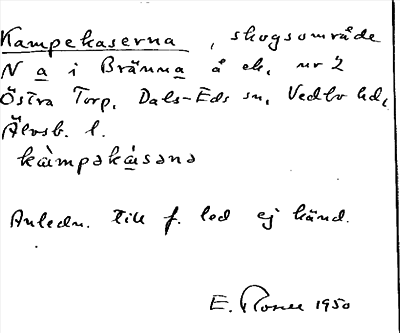 Kampekaserna, skogsområde
N a i Bränna å ek. nr 2
Östra Torp, Dals-Eds sn, Vedbo hd,
Älvsb. l.
kàmpəkásəna
Anledn. till f. led ej känd.
E. 1950